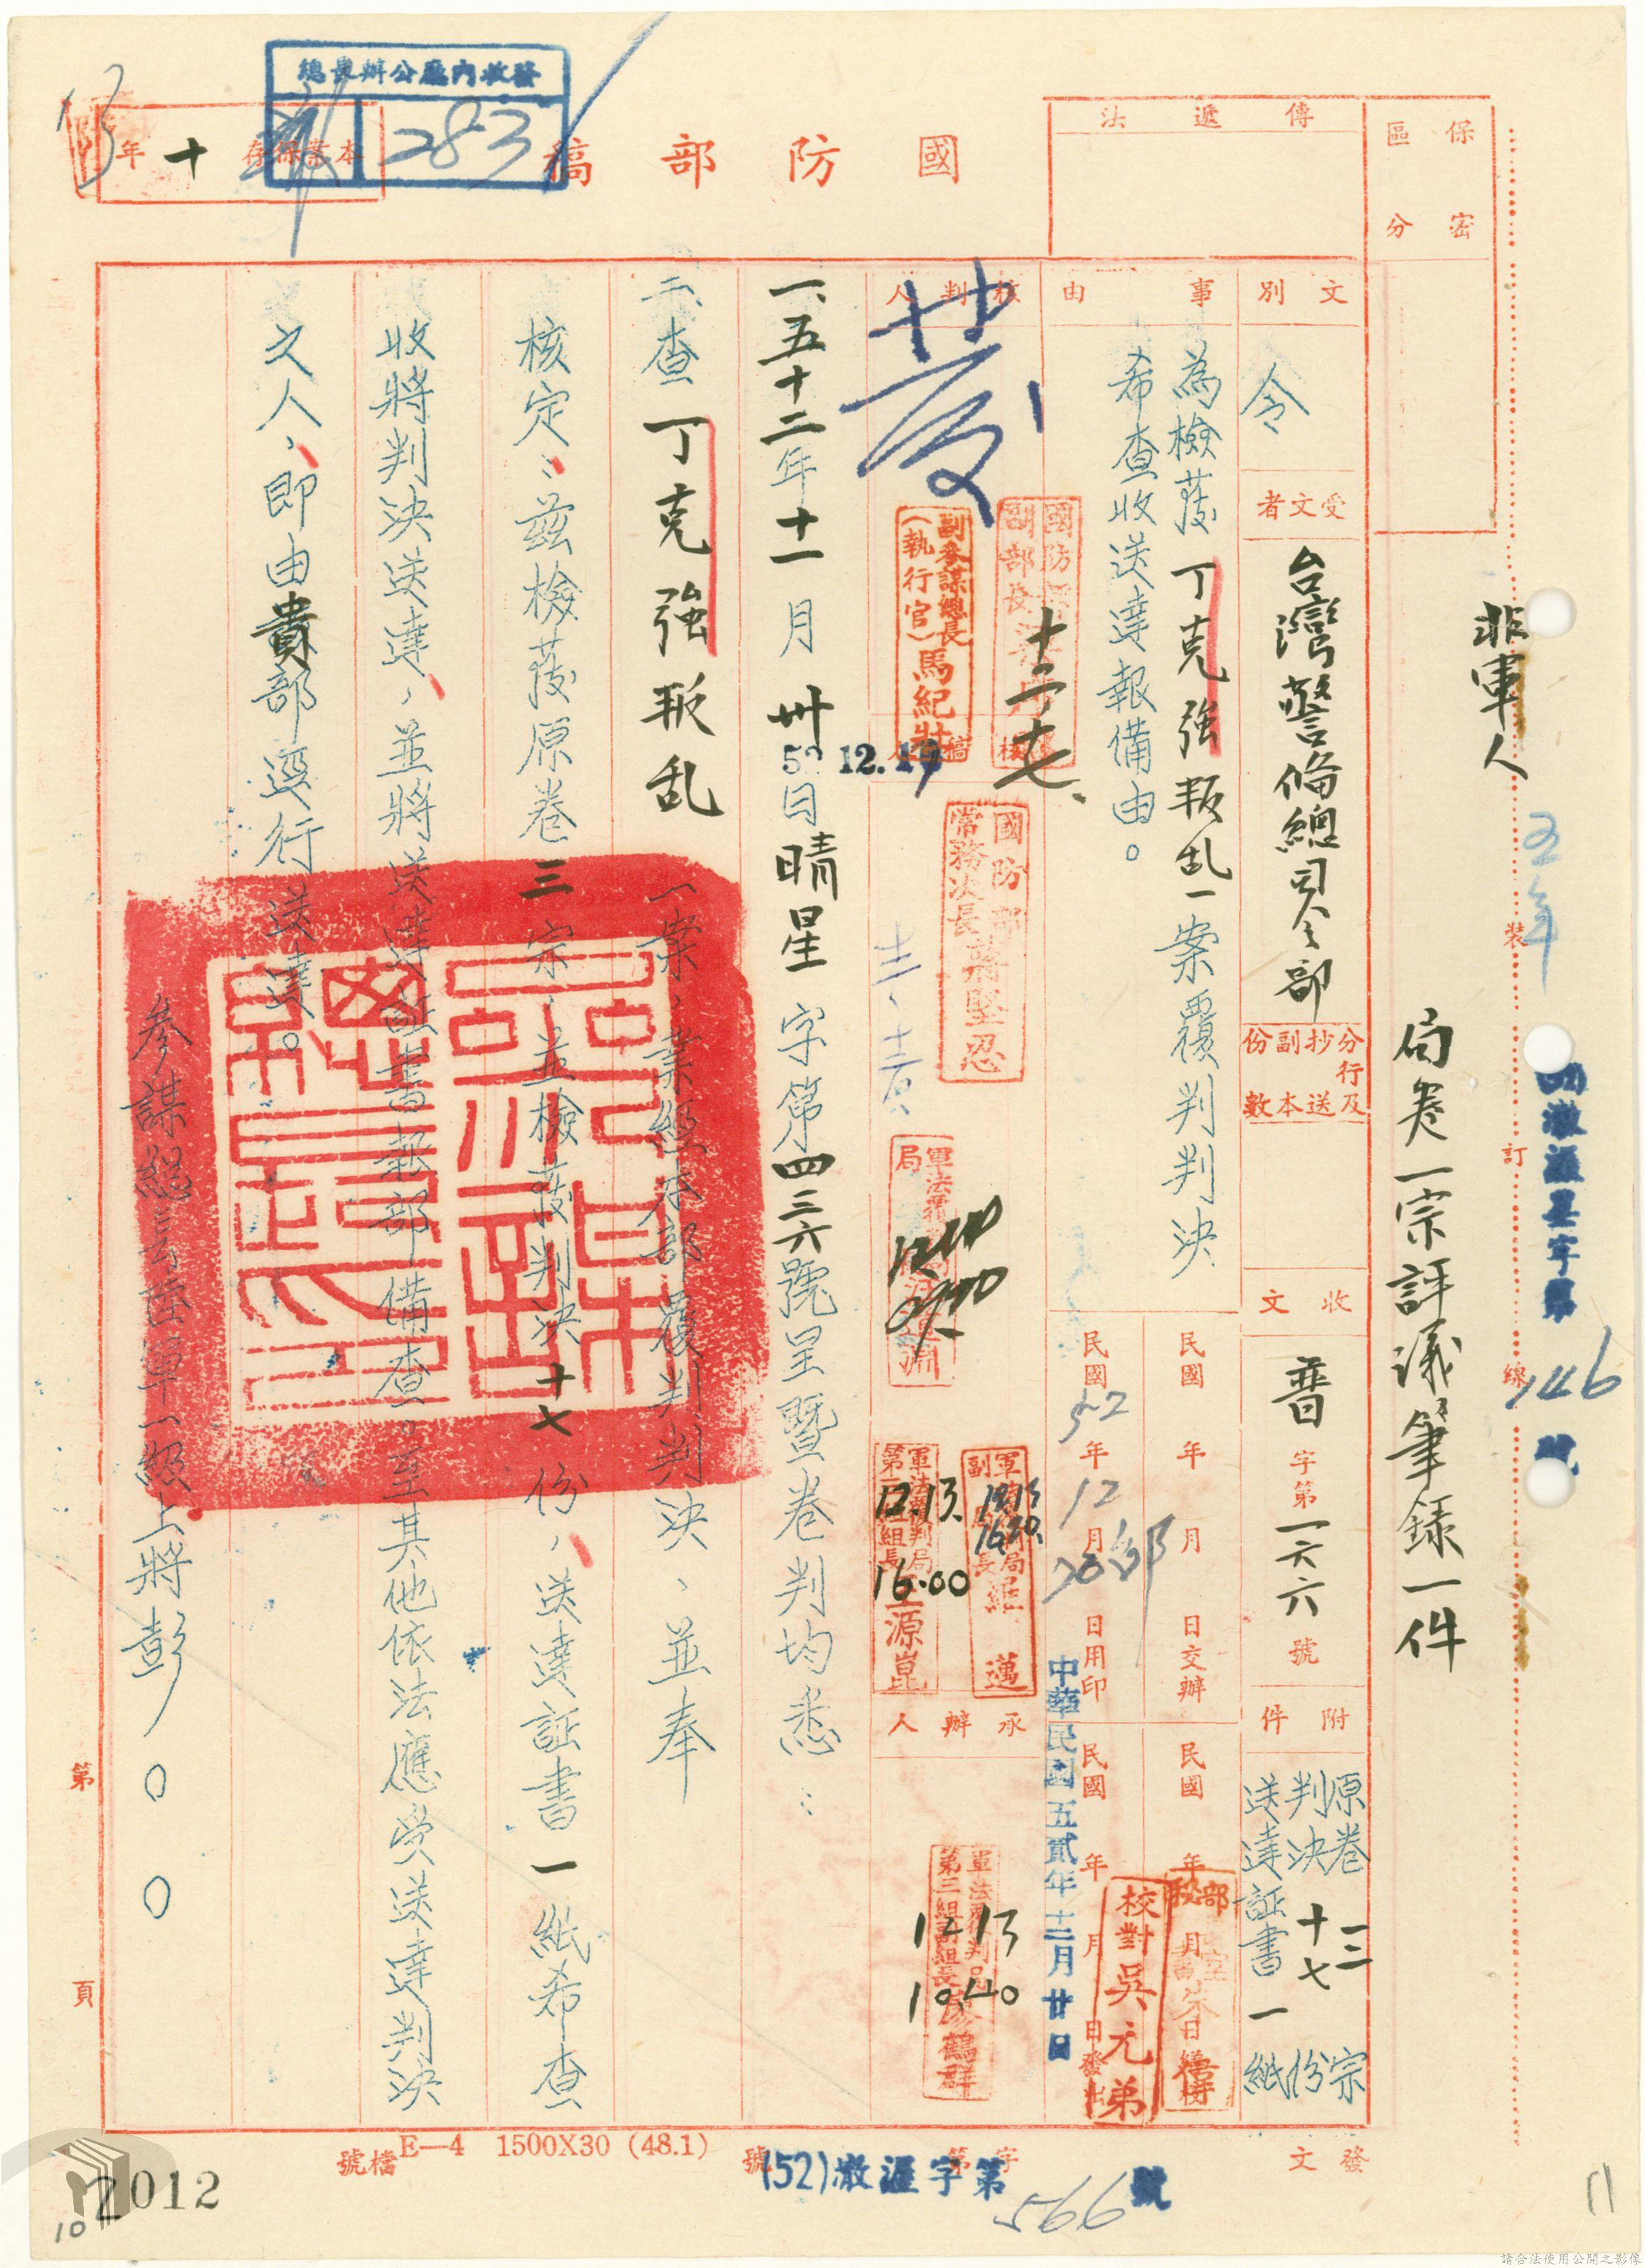 國防部稿
總長辦公廳內收發
283
本案保存十年
傳遞法
保密區分
非軍人
局卷一宗評議筆錄一件
裝
訂
線
146
號
文別
令
受文者
台灣警備總司令部
分行及抄送副本份數
收文
普字第一六六號
附件
原卷三宗
判決十七份
送達証書一紙
事由
為檢發丁克強叛乱一案覆判判決
希查收送達報備由。
民國 年 月 日交辦
民國52年12月20日用印
民國 年 月 日
民國 年 月 日發出
中華民國五貳年十二月廿日
校對吳元弟
核判人
發
副參謀總長
(執行官)馬紀壯
十二、十七、
12.19
國防部
常務次長蔣堅忍
12.13.
16.00
承辦人
1213
10.40
一、五十二年十一月卅日晴星字第四三六號呈暨卷判均悉：
二、查丁克強叛乱一案、業經本部覆判判決、並奉
核定：茲檢發原卷三宗、並檢發判決十七份、送達証書一紙希查
收將判決送達、並將送達証書報部備查。至其他依法應受送達判決
之人、即由貴部逕行送達。
參謀總長陸軍一級上將彭○○
第 頁
檔號
E—4 1500X30 (48.1)
發文
字第 號
(52)澈湦字第566號
2012
10
11
請合法使用公開之影像